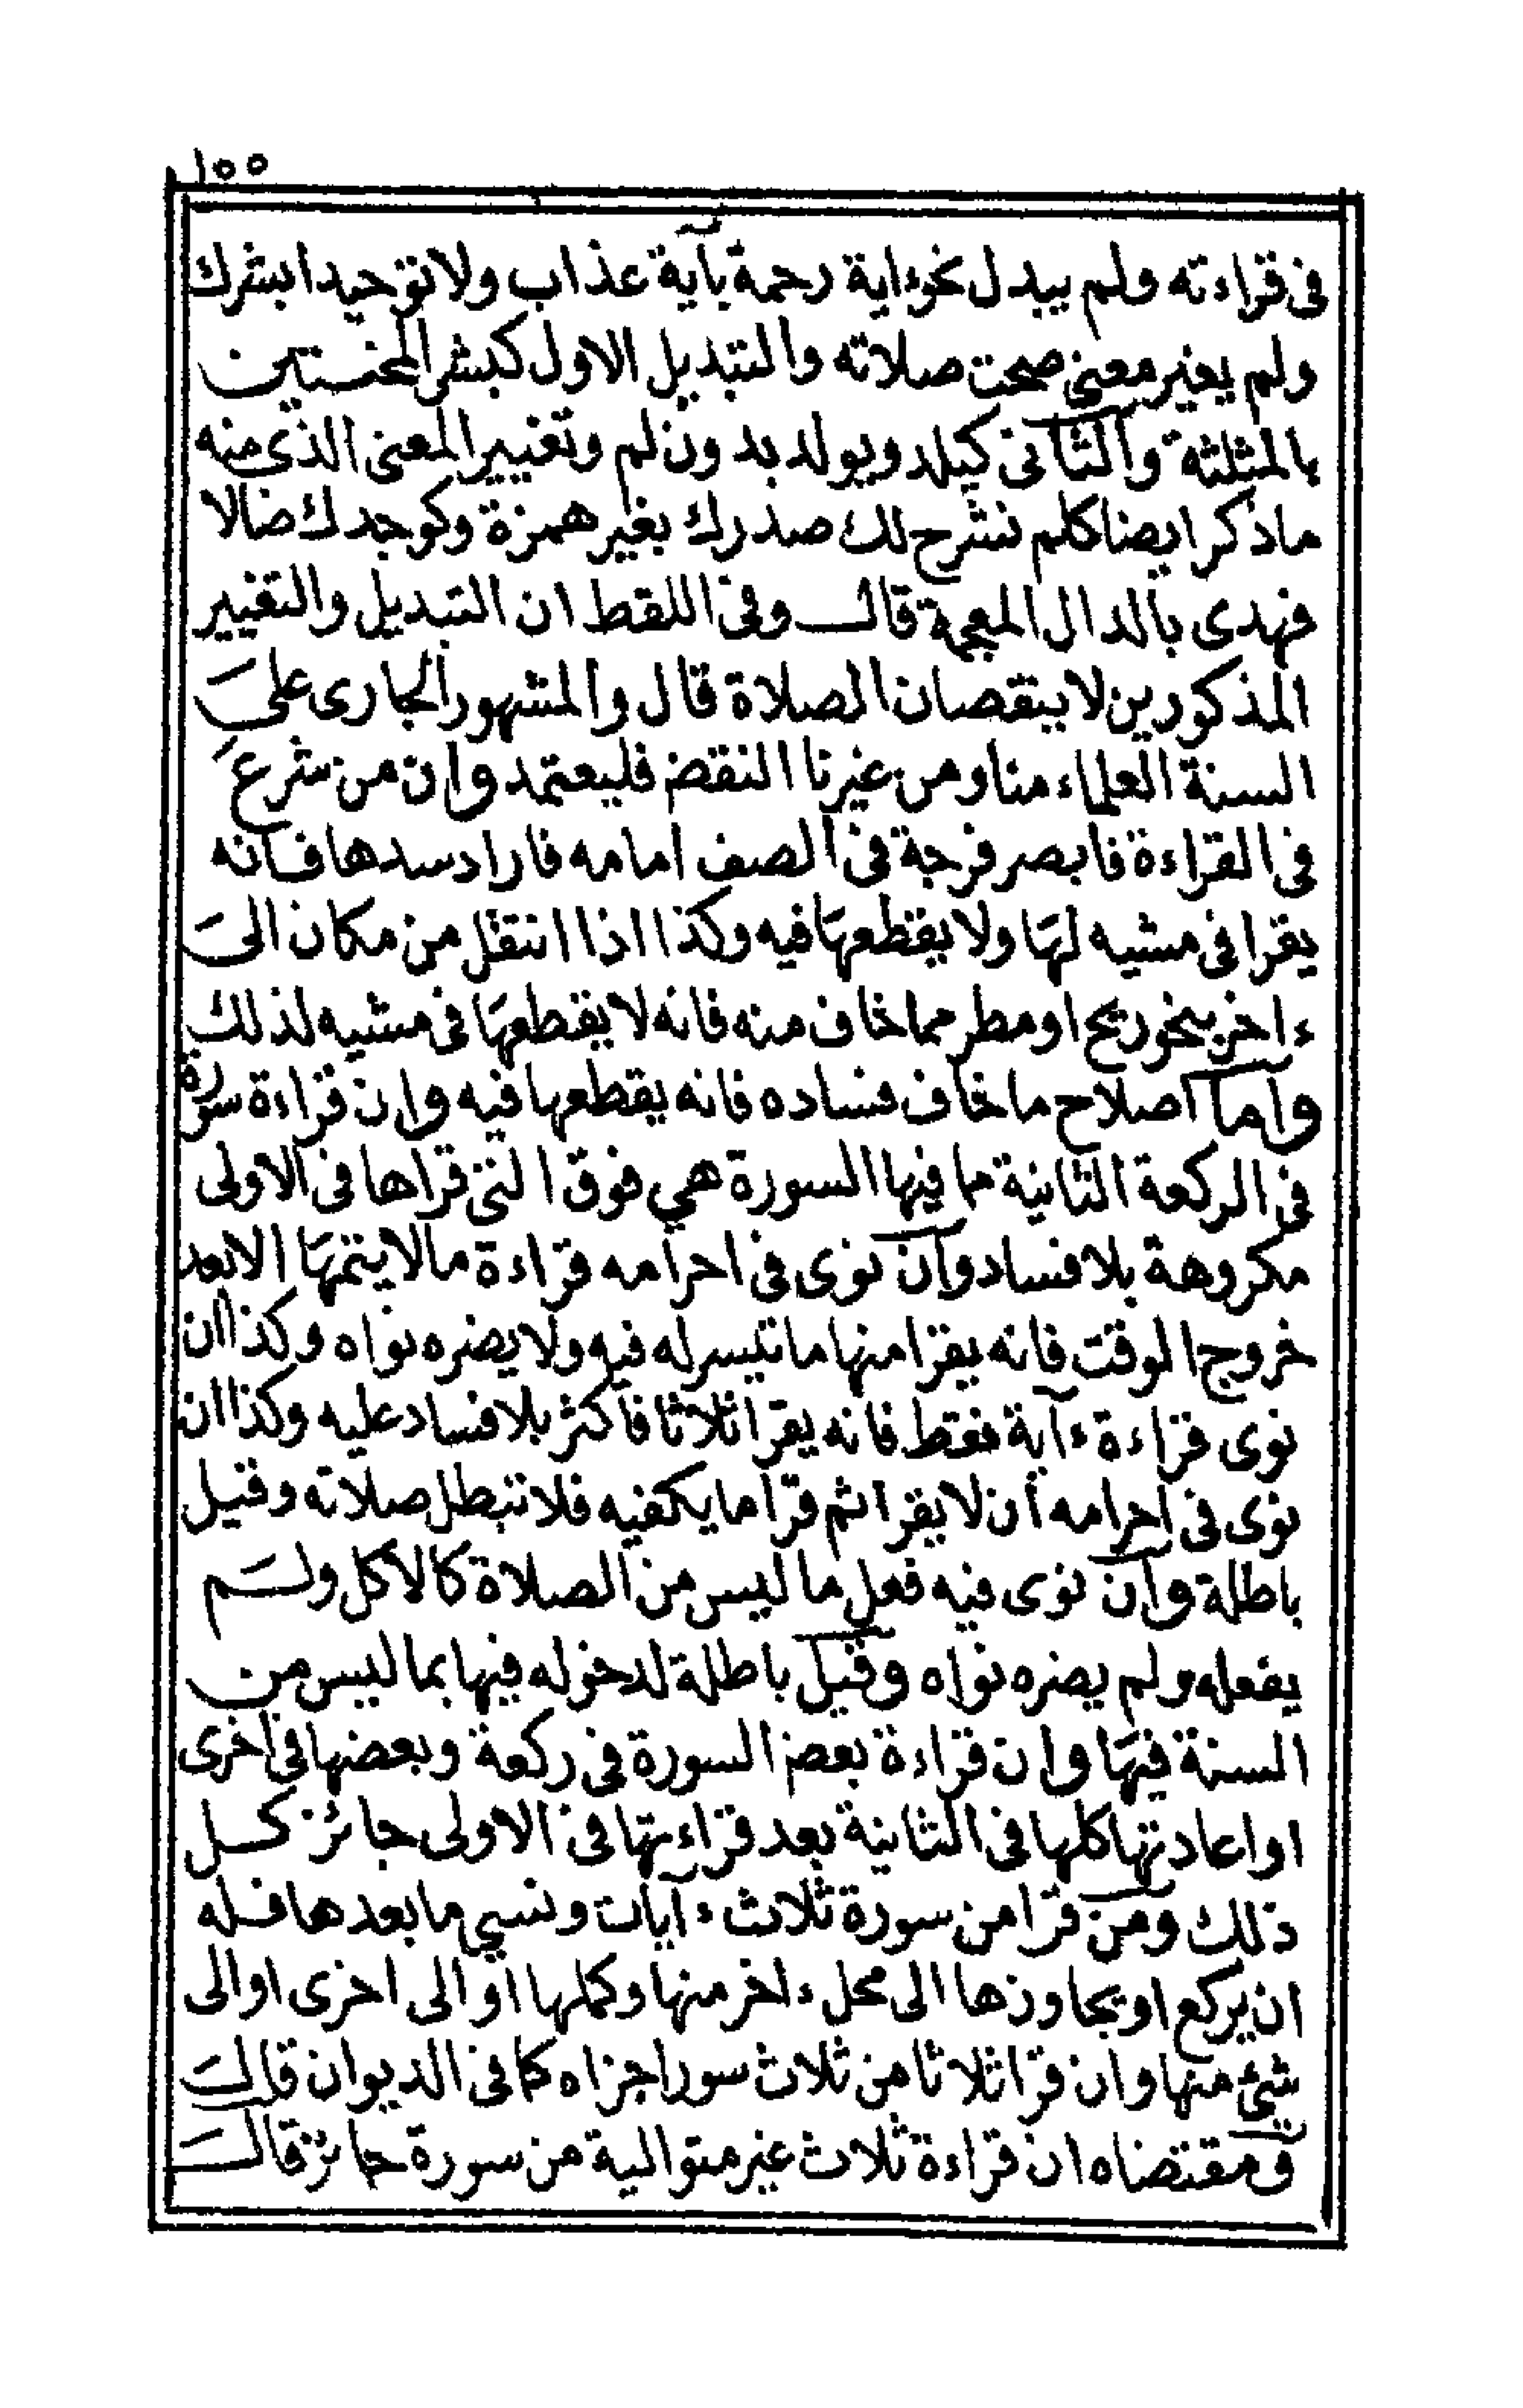 ١٥٥
فى قراءته ولم يبدل نحو ءاية رحمة بآية عذاب ولا توحيدا بشرك
ولم يغير معنى صحت صلاته والتبديل الاول كبشر المخستين
بالمثلثة والثانى كيلد ويولد بدون لم وتغيير المعنى الذى منه
ماذكر ايضا كلم نشرح لك صدرك بغير همزة وكوجدك ضالا
فهدى بالدال المعجمة قال وفى اللقط ان التبديل والتغيير
المذكورين لا ينقصان الصلاة قال والمشهور الجارى على
السنة العلماء منا ومن غيرنا النقض فليعتمد وان من شرع
فى القراءة فابصر فرجة فى الصف امامه فاراد سدها فانه
يقرا فى مشيه لها ولا يقطعها فيه وكذا اذا انتقل من مكان الى
ءاخر بنحو ريح او مطر مما خاف منه فانه لا يقطعها فى مشيه لذلك
واما اصلاح ما خاف فساده فانه يقطعها فيه وان قراءة سورة
فى الركعة الثانية مما فيها السورة هي فوق التى قراها فى الاولى
مكروهة بلا فساد وان نوى فى احرامه قراءة ما لا يتمها الا بعد
خروج الوقت فانه يقرا منها ما تيسر له فيه ولا يضره نواه وكذا ان
نوى قراءة ءآية فقط فانه يقرا ثلاثا فاكثر بلا فساد عليه وكذا ان
نوى فى احرامه أن لا يقرا ثم قرا ما يكفيه فلا تبطل صلاته وقيل
باطلة وان نوى فيه فعل ما ليس من الصلاة كالاكل ولم
يفعله ولم يضره نواه وقيل باطلة لدخوله فيها بما ليس من
السنة فيها وان قراءة بعض السورة فى ركعة وبعضها فى اخرى
او اعادتها كلها فى الثانية بعد قراءتها فى الاولى جائز كل
ذلك ومن قرا من سورة ثلاث ءآيات ونسي ما بعدها فله
ان يركع او يجاوزها الى محل ءاخر منها وكملها او الى اخرى او الى
شئ منها وان قرا ثلاثا من ثلاث سور اجزاه كما فى الديوان قال
ومقتضاه ان قراءة ثلاث غير متوالية من سورة جائز قال